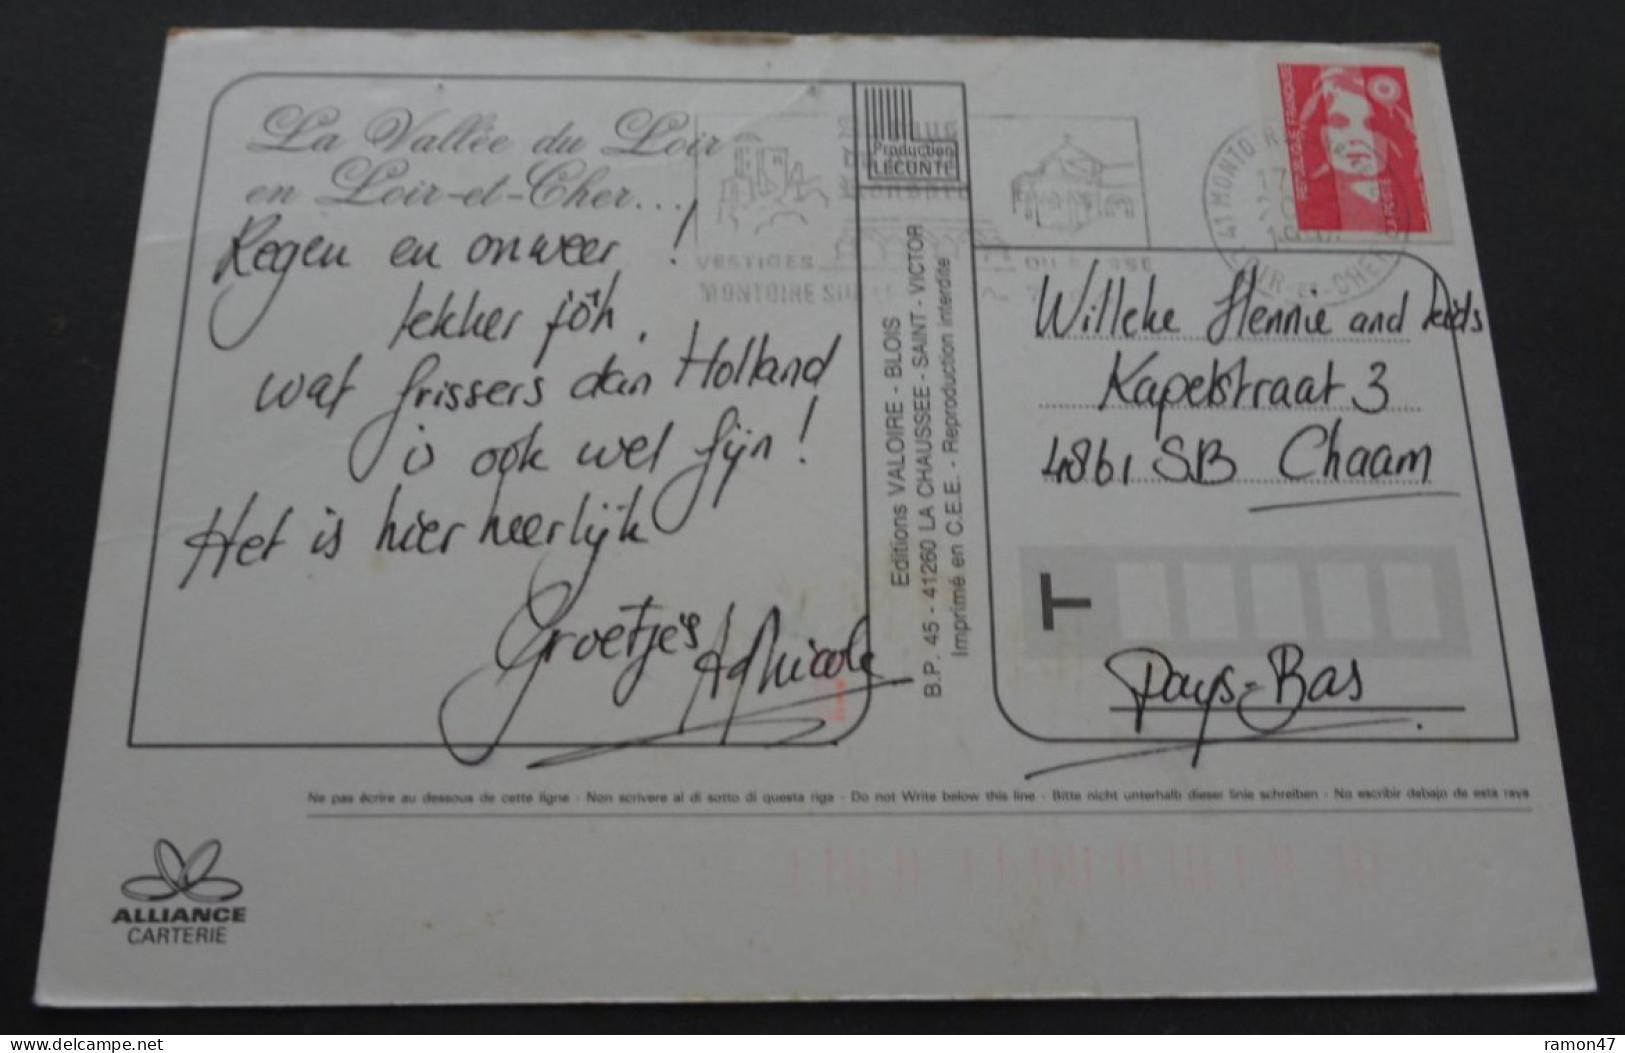 La Vallée du Loir
en Loir-et-Cher...
Regen en onweer !
lekker jôh.
wat frissers dan Holland
is ook wel fijn!
Het is hier heerlijk
Groetjes
Ad Nicole
Production
LECONTE
VESTIGES
MONTOIRE SUR
Editions VALOIRE - BLOIS
B.P. 45 - 41260 LA CHAUSSEE - SAINT - VICTOR
Imprimé en C.E.E. - Reproduction interdite
REPUBLIQUE FRANÇAISE
LA POSTE
41 MONTOIRE
LOIR-ET-CHER
Willeke Hennie and kids
Kapelstraat 3
4861 SB Chaam
T
Pays-Bas
Ne pas écrire au dessous de cette ligne - Non scrivere al di sotto di questa riga - Do not Write below this line - Bitte nicht unterhalb dieser linie schreiben - No escribir debajo de esta raya
ALLIANCE
CARTERIE
delcampe.net
ramon47